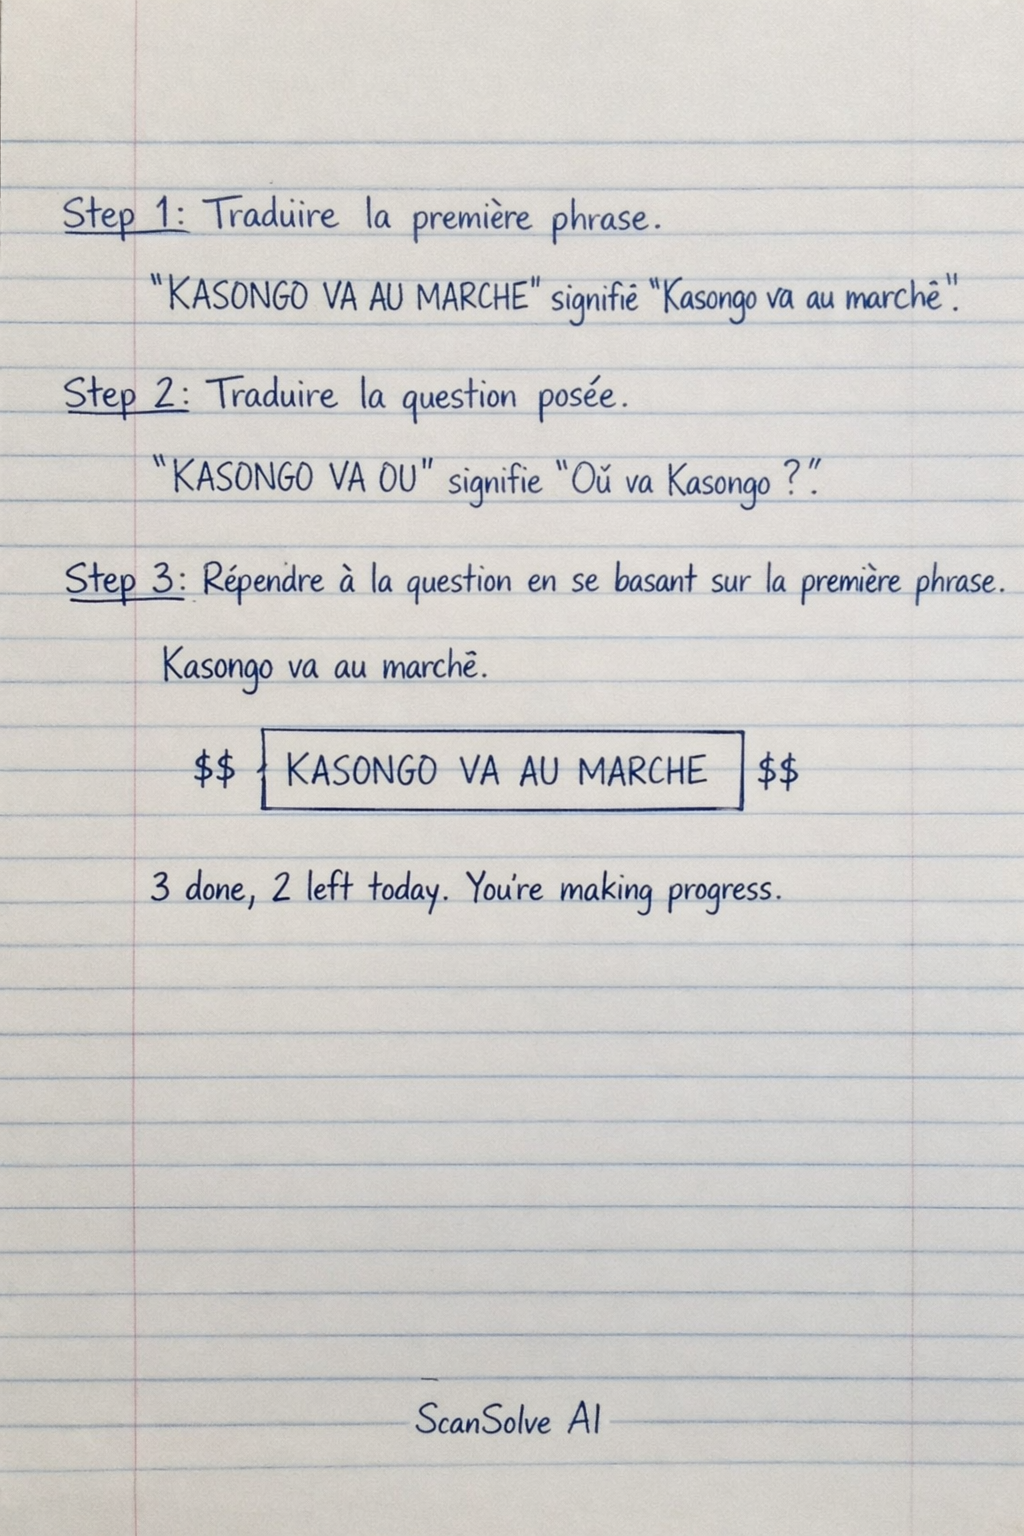 Step 1: Tradüire la première phrase.
"KASONGO VA AU MARCHE" signifiē "Kasongo va au marchē".
Step 2: Traduire la question posée.
"KASONGO VA OU" signifie "Oŭ va Kasongo ?".
Step 3: Répendre à la question en se basant sur la première phrase.
Kasongo va au marchē.
$$ KASONGO VA AU MARCHE $$
3 done, 2 left today. You're making progress.
ScanSolve AI